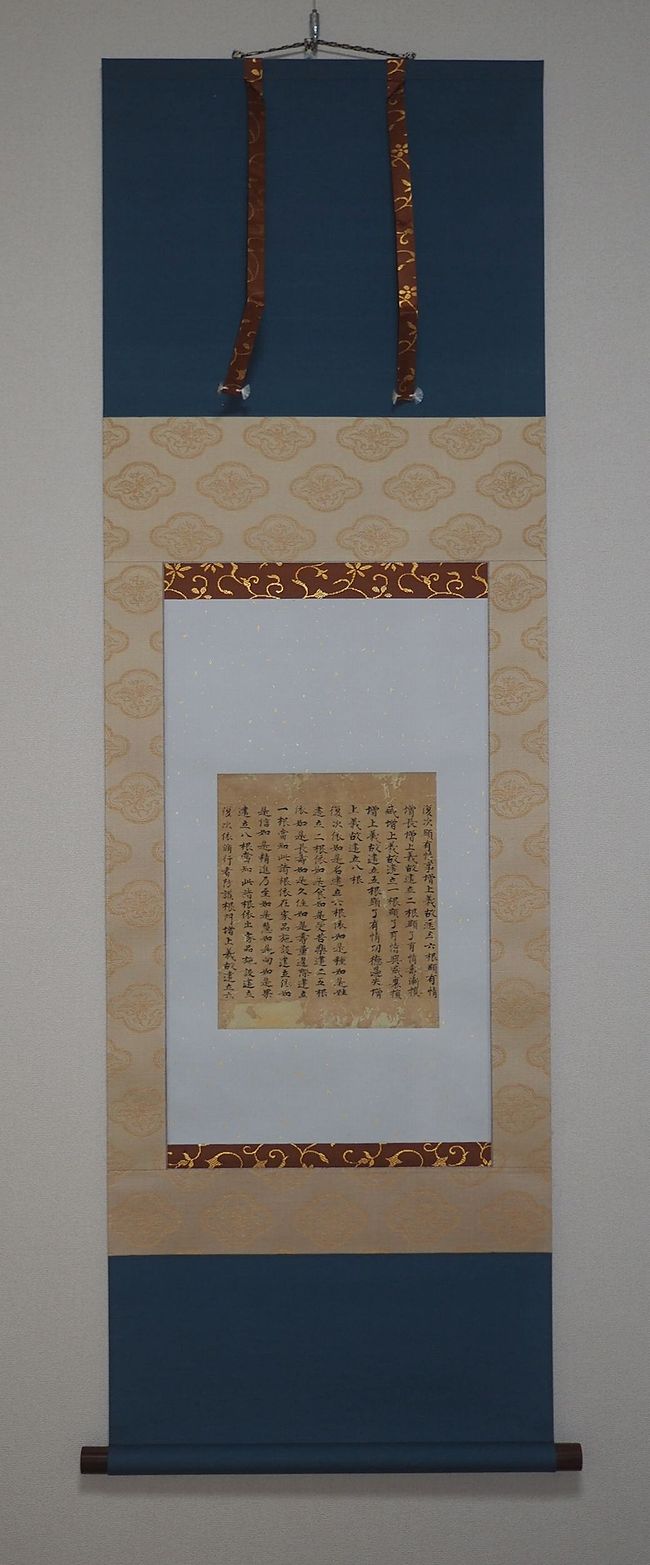 復次顯有情事增上義故建立六根顯有情
增長增上義故建立二根顯了有情壽漸損
減增上義故建立一根顯了有情興盛衰損
增上義故建立五根顯了有情功德過失增
上義故建立八根
復次依如是名建立六根依如是種如是姓
建立二根依如是食如是受苦樂建立五根
依如是長壽如是久住如是壽量邊際建立
一根當知此諸根依在家品施設建立依如
是信如是精進乃至如是慧如是向如是果
建立八根當知此諸根依出家品施設建立
復次依諸行者防護根門增上義故建立六